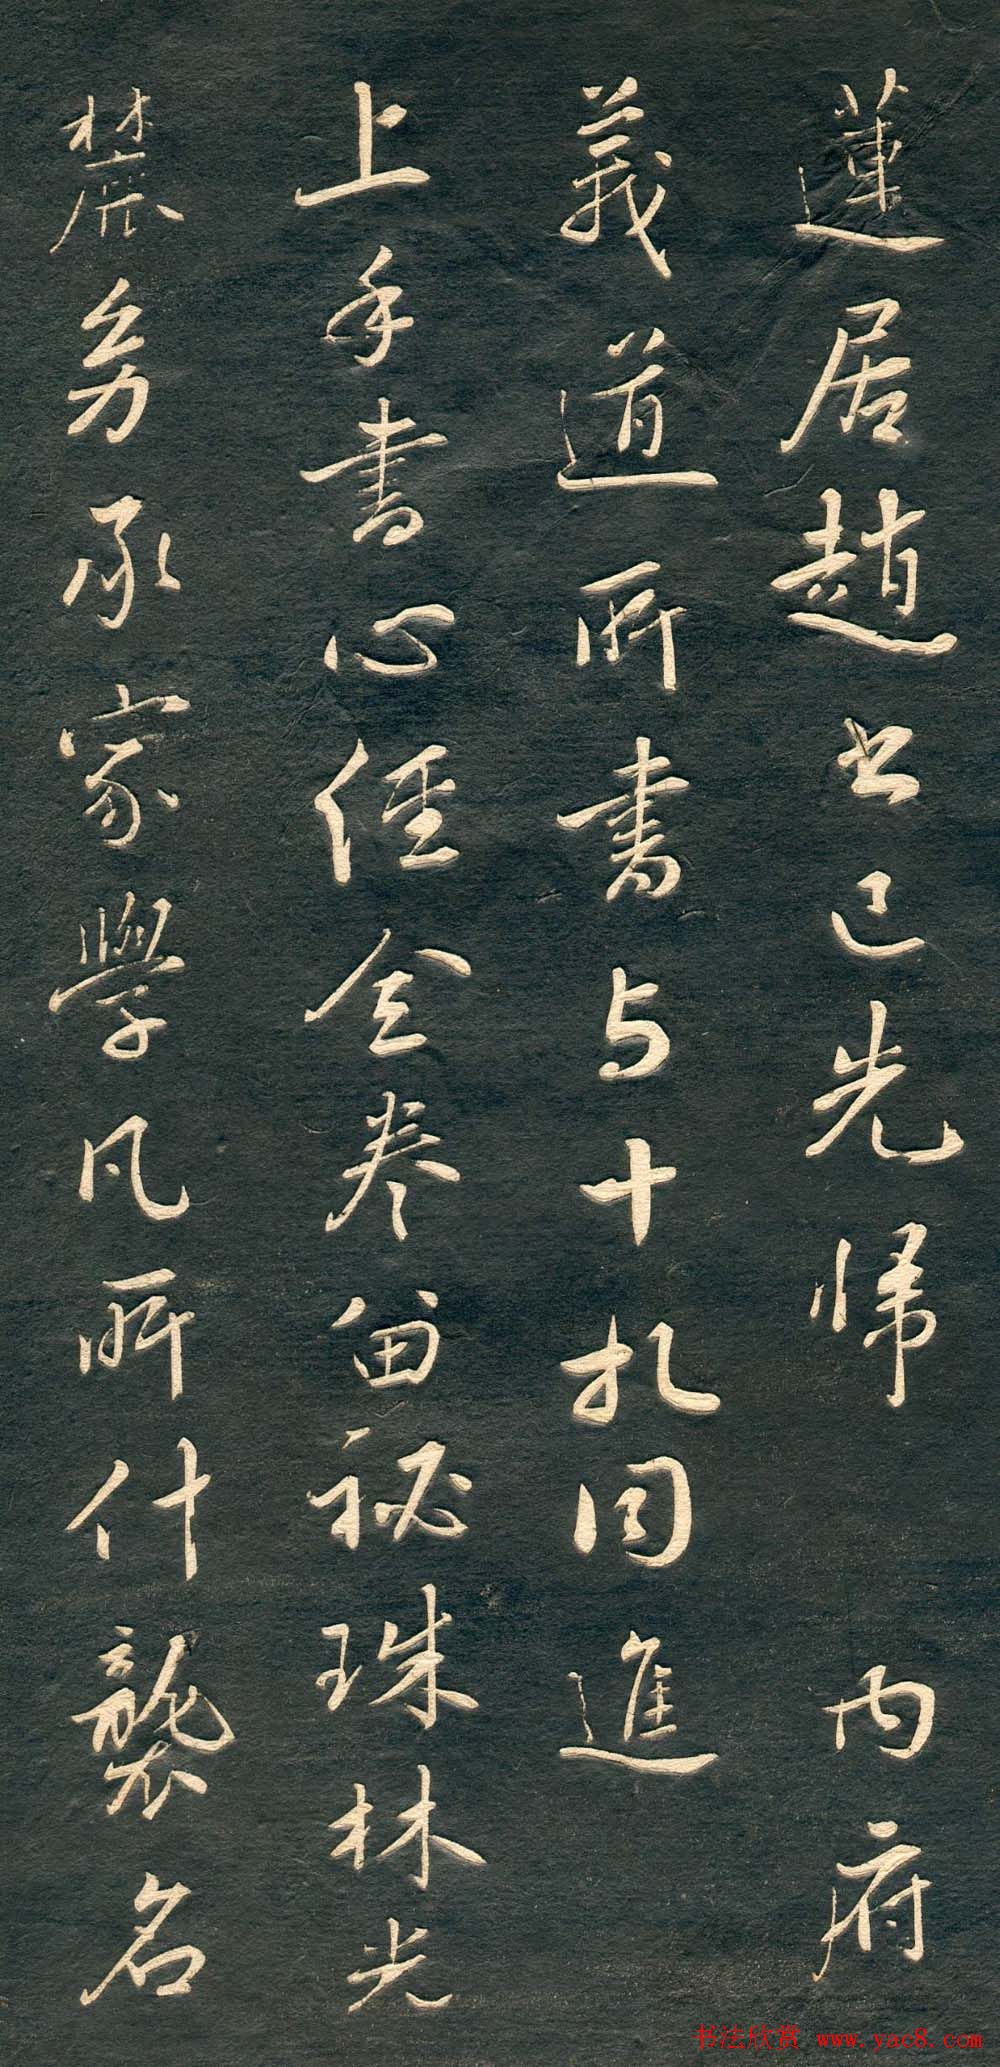 蓮居趙已先歸 內府
義道所書与十札同進
上手書心經全卷留祕珠林光
麓幼承家學凡所什襲名
书法欣赏 www.yac8.com